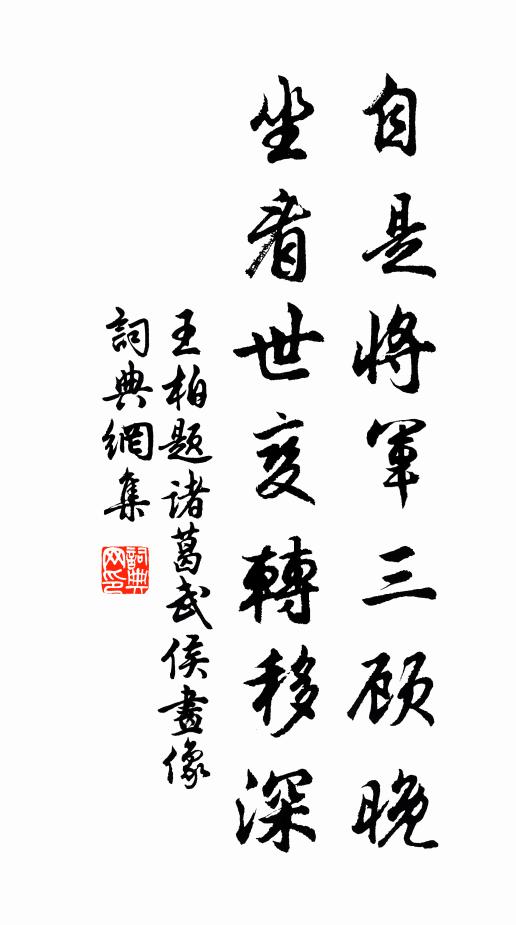 自是将軍三顾晚
坐看世变轉移深
王柏题诸葛武侯畫像
詞典網集
詞典网印